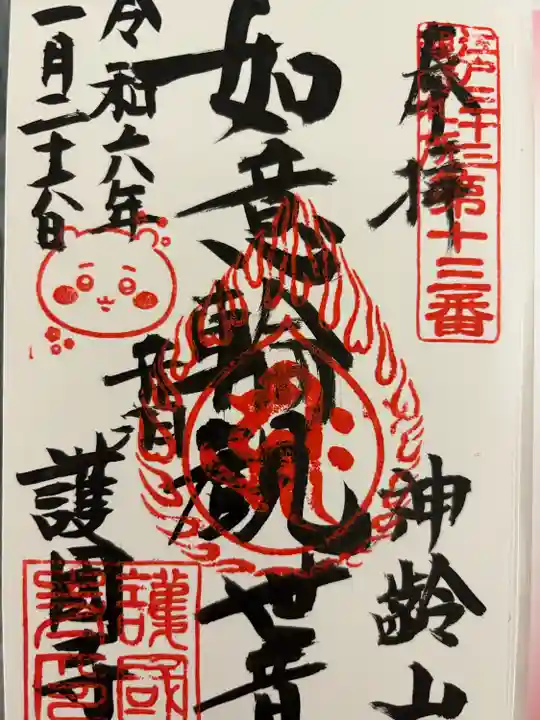 奉拝
江戸三十三
第十三番
神齢山
如意輪観世音
令和六年
一月二十八日
護国寺
護國